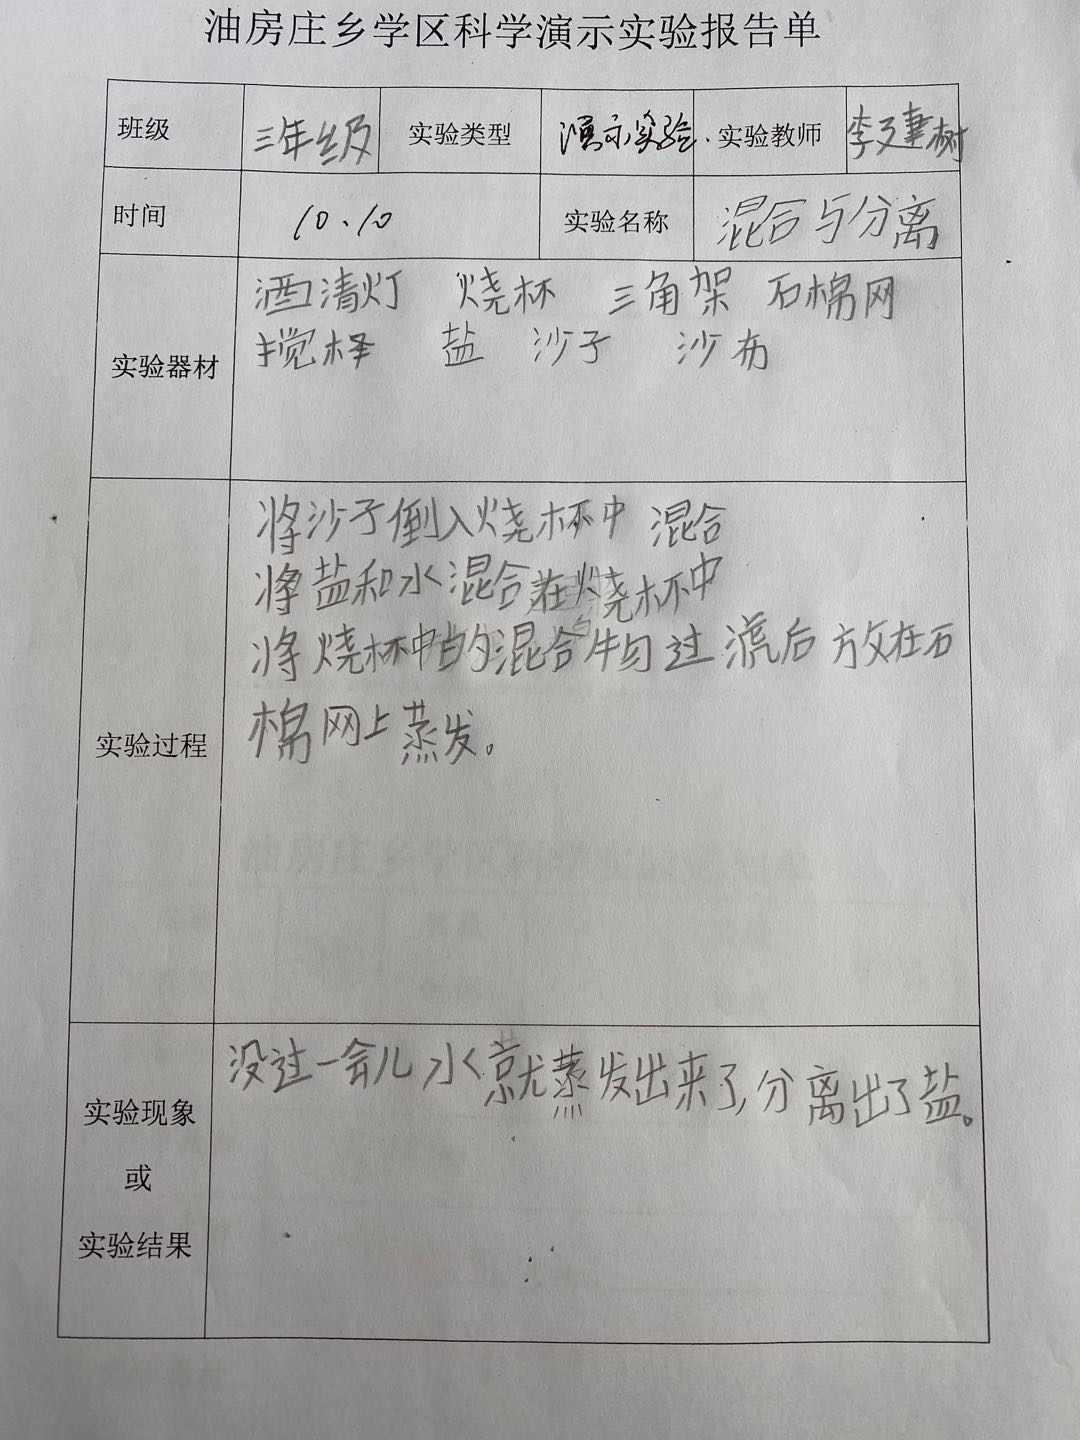 油房庄乡学区科学演示实验报告单
班级 三年级 实验类型 演示实验 实验教师 李建树
时间 10、10 实验名称 混合与分离
实验器材
酒清灯 烧杯 三角架 石棉网
搅择 盐 沙子 沙布
实验过程
将沙子倒入烧杯中 混合
将盐和水混合在烧杯中
将烧杯中的混合物过滤后放在石
棉网上蒸发。
实验现象
或
实验结果
没过一会儿水就蒸发出来了,分离出了盐。